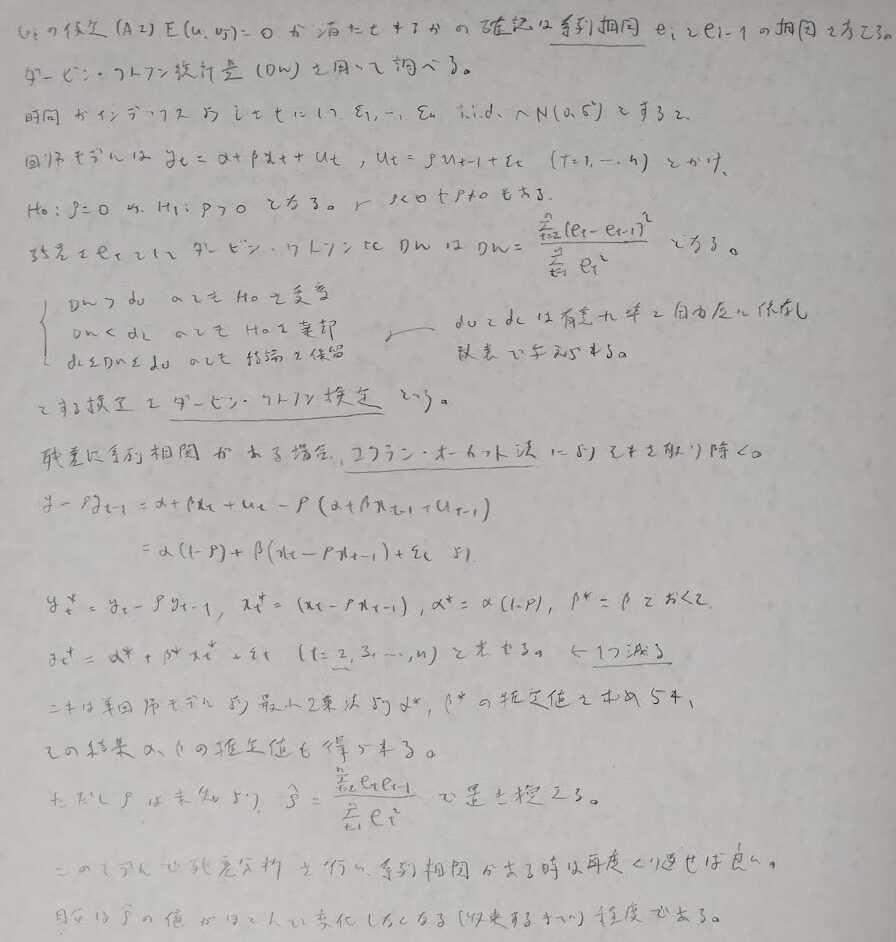 uᵢの仮定 (A2) E(uᵢuⱼ)=0 が満たされるかの確認は系列相関 eᵢとeᵢ₋₁の相関を考える。
ダービン・ワトソン統計量 (DW) を用いて調べる。
時間がインデックスより i を t にし、ε₁,…,εₙ i.i.d. ~ N(0,σ²) とすると
回帰モデルは yₜ = α+βxₜ+uₜ , uₜ = ρuₜ₋₁+εₜ (t=1,…,n) とかけ、
H₀: ρ=0 vs. H₁: ρ>0 となる。 ρ<0 や ρ≠0 もある.
残差を eₜ として ダービン・ワトソン比 DW は DW = Σₜ₌₂ⁿ(eₜ−eₜ₋₁)² / Σₜ₌₁ⁿ eₜ² となる。
DW > dU のとき H₀ を受容
DW < dL のとき H₀ を棄却 ← dU と dL は有意水準と自由度に依存し
dL ≤ DW ≤ dU のとき 結論を保留 数表で与えられる。
とする検定を ダービン・ワトソン検定 という。
残差に系列相関がある場合、コクラン・オーカット法 によりそれを取り除く。
y−ρyₜ₋₁ = α+βxₜ+uₜ−ρ(α+βxₜ₋₁+uₜ₋₁)
= α(1−ρ)+β(xₜ−ρxₜ₋₁)+εₜ より
yₜ* = yₜ−ρyₜ₋₁, xₜ* = (xₜ−ρxₜ₋₁), α* = α(1−ρ), β* = β とおくと
yₜ* = α*+β*xₜ*+εₜ (t=2,3,…,n) と表せる。 ← 1つ減る
これは単回帰モデルより 最小2乗法より α*, β* の推定値を求められ、
その結果 α, β の推定値も得られる。
ただし ρ は未知より ρ̂ = Σₜ₌₂ⁿ eₜeₜ₋₁ / Σₜ₌₁ⁿ eₜ² で置き換える。
このモデルで残差分析を行い、系列相関がある時は再度くり返せば良い。
目安は ρ̂ の値がほとんど変化しなくなる (収束するまで) 程度である。